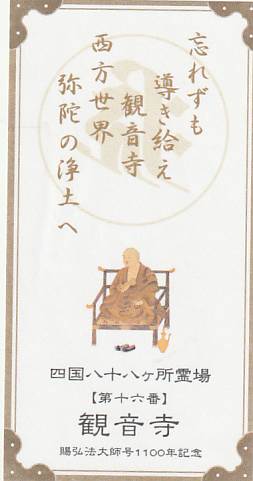 忘れずも
導き給え
観音寺
西方世界
弥陀の浄土へ
四国八十八ヶ所霊場
【第十六番】
観音寺
賜弘法大師号1100年記念